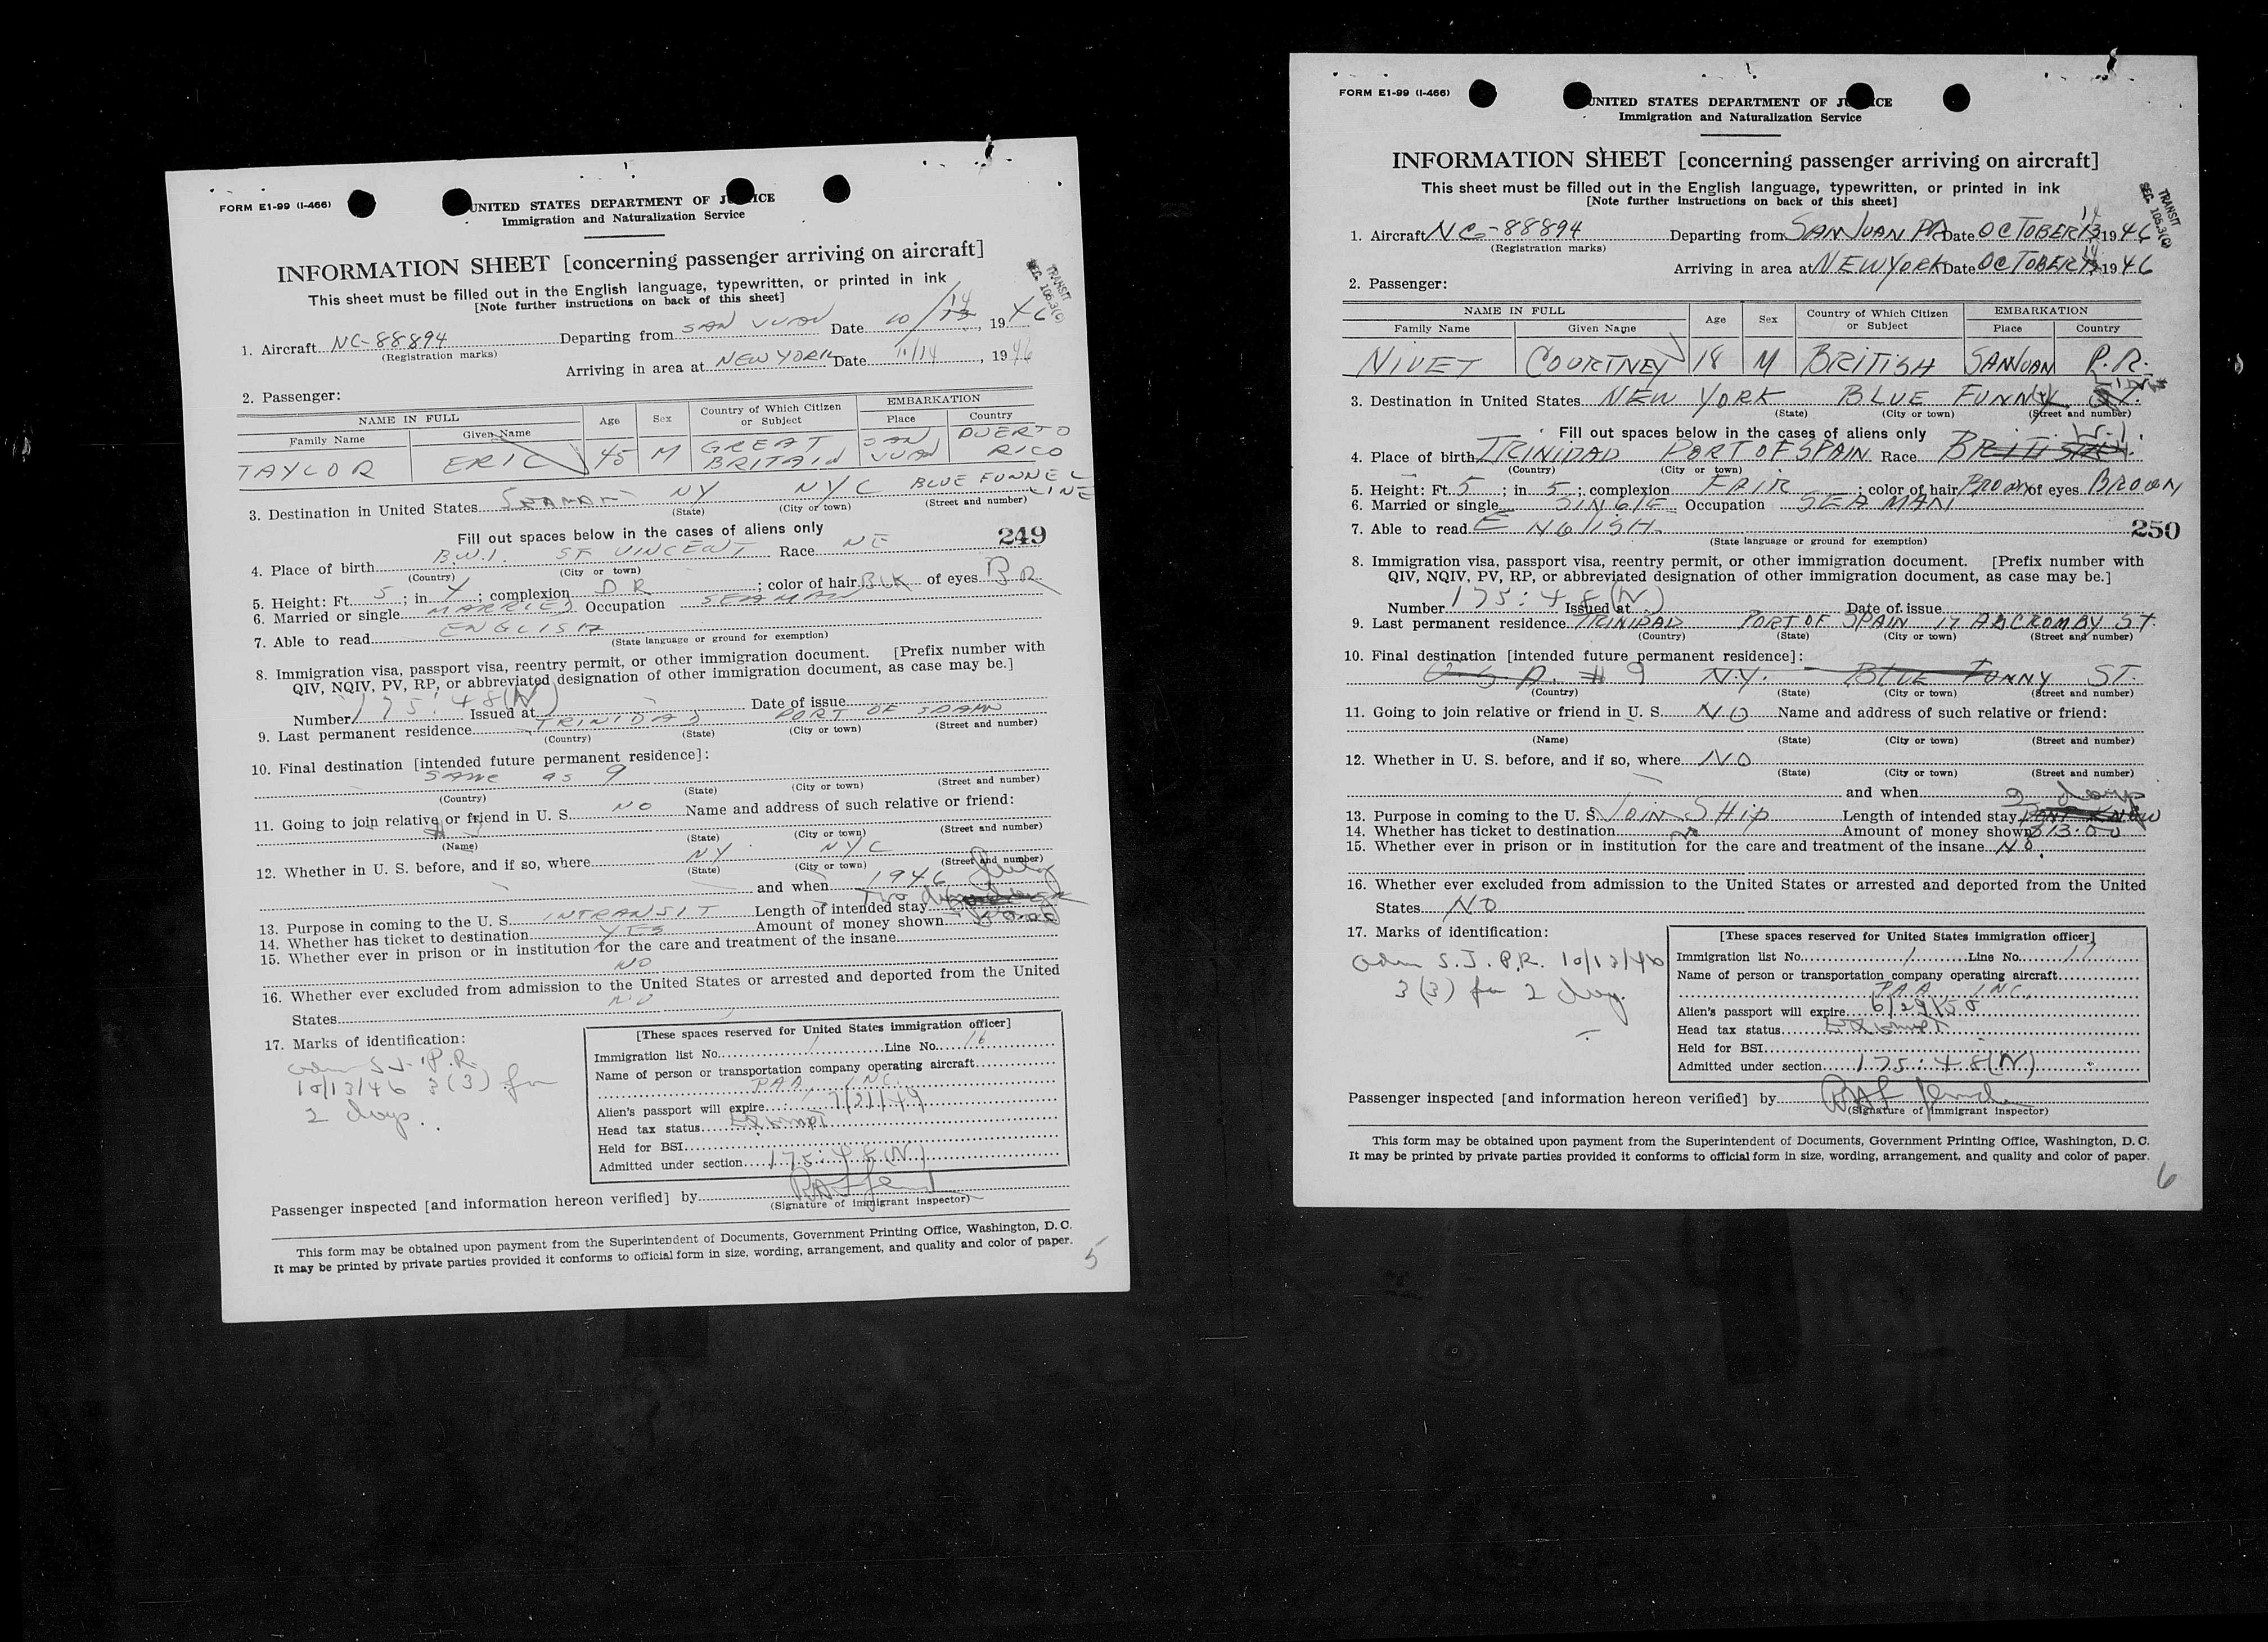 FORM E1-99 (I-466)
UNITED STATES DEPARTMENT OF JUSTICE
Immigration and Naturalization Service
INFORMATION SHEET [concerning passenger arriving on aircraft]
This sheet must be filled out in the English language, typewritten, or printed in ink
[Note further instructions on back of this sheet]
TRANSIT
SEC. 105.3(c)
1. Aircraft NC-88894 Departing from SAN JUAN Date 10/14, 1946
(Registration marks)
Arriving in area at NEW YORK Date 10/14, 1946
2. Passenger:
NAME IN FULL Age Sex Country of Which Citizen or Subject EMBARKATION
Family Name Given Name Place Country
TAYLOR ERIC 45 M GREAT BRITAIN SAN JUAN PUERTO RICO
3. Destination in United States SEAMAN NY NYC BLUE FUNNEL LINE
(State) (City or town) (Street and number)
Fill out spaces below in the cases of aliens only 249
4. Place of birth B.W.I. ST VINCENT Race NE
(Country) (City or town)
5. Height: Ft. 5; in 4; complexion DR; color of hair BLK of eyes BR
6. Married or single MARRIED Occupation SEAMAN
7. Able to read ENGLISH
(State language or ground for exemption)
8. Immigration visa, passport visa, reentry permit, or other immigration document. [Prefix number with
QIV, NQIV, PV, RP, or abbreviated designation of other immigration document, as case may be.]
Number 175:48(N) Issued at Date of issue
9. Last permanent residence TRINIDAD PORT OF SPAIN
(Country) (State) (City or town) (Street and number)
10. Final destination [intended future permanent residence]:
SAME as 9
(Country) (State) (City or town) (Street and number)
11. Going to join relative or friend in U. S. NO Name and address of such relative or friend:
(Name) (State) (City or town) (Street and number)
12. Whether in U. S. before, and if so, where NY NYC
(State) (City or town) (Street and number)
and when 1946 July
13. Purpose in coming to the U. S. INTRANSIT Length of intended stay Two days
14. Whether has ticket to destination YES Amount of money shown
15. Whether ever in prison or in institution for the care and treatment of the insane
NO
16. Whether ever excluded from admission to the United States or arrested and deported from the United
States NO
17. Marks of identification:
adm S.J. P.R.
10/13/46 3(3) for
2 days.
[These spaces reserved for United States immigration officer]
Immigration list No. 1 Line No. 16
Name of person or transportation company operating aircraft
PAA INC.
Alien's passport will expire 7/21/49
Head tax status Exempt
Held for BSI
Admitted under section 175:48(N)
Passenger inspected [and information hereon verified] by
(Signature of immigrant inspector)
This form may be obtained upon payment from the Superintendent of Documents, Government Printing Office, Washington, D. C.
It may be printed by private parties provided it conforms to official form in size, wording, arrangement, and quality and color of paper.
5
FORM E1-99 (I-466)
UNITED STATES DEPARTMENT OF JUSTICE
Immigration and Naturalization Service
INFORMATION SHEET [concerning passenger arriving on aircraft]
This sheet must be filled out in the English language, typewritten, or printed in ink
[Note further instructions on back of this sheet]
TRANSIT
SEC. 105.3(c)
1. Aircraft NC-88894 Departing from SAN JUAN PR Date OCTOBER 14 1946
(Registration marks)
Arriving in area at NEW YORK Date OCTOBER 14 1946
2. Passenger:
NAME IN FULL Age Sex Country of Which Citizen or Subject EMBARKATION
Family Name Given Name Place Country
NIVET COURTNEY 18 M BRITISH SAN JUAN P.R.
3. Destination in United States NEW YORK BLUE FUNNY LINE
(State) (City or town) (Street and number)
Fill out spaces below in the cases of aliens only
4. Place of birth TRINIDAD PORT OF SPAIN Race BRITISH
(Country) (City or town)
5. Height: Ft. 5; in 5; complexion FAIR; color of hair BROWN of eyes BROWN
6. Married or single SINGLE Occupation SEAMAN
7. Able to read ENGLISH 250
(State language or ground for exemption)
8. Immigration visa, passport visa, reentry permit, or other immigration document. [Prefix number with
QIV, NQIV, PV, RP, or abbreviated designation of other immigration document, as case may be.]
Number 175:48(N) Issued at Date of issue
9. Last permanent residence TRINIDAD PORT OF SPAIN 17 ABCROMBY ST.
(Country) (State) (City or town) (Street and number)
10. Final destination [intended future permanent residence]:
U S A. # 9 N.Y. BLUE FUNNY ST.
(Country) (State) (City or town) (Street and number)
11. Going to join relative or friend in U. S. NO Name and address of such relative or friend:
(Name) (State) (City or town) (Street and number)
12. Whether in U. S. before, and if so, where NO
(State) (City or town) (Street and number)
and when
13. Purpose in coming to the U. S. JOIN SHIP Length of intended stay 2 days DONT KNOW
14. Whether has ticket to destination no Amount of money shown $13.00
15. Whether ever in prison or in institution for the care and treatment of the insane NO.
16. Whether ever excluded from admission to the United States or arrested and deported from the United
States NO
17. Marks of identification:
adm S.J. P.R. 10/13/46
3(3) for 2 days.
[These spaces reserved for United States immigration officer]
Immigration list No. 1 Line No. 17
Name of person or transportation company operating aircraft
PAA INC.
Alien's passport will expire 6/29/50
Head tax status Exempt
Held for BSI
Admitted under section 175:48(N)
Passenger inspected [and information hereon verified] by
(Signature of immigrant inspector)
This form may be obtained upon payment from the Superintendent of Documents, Government Printing Office, Washington, D. C.
It may be printed by private parties provided it conforms to official form in size, wording, arrangement, and quality and color of paper.
6